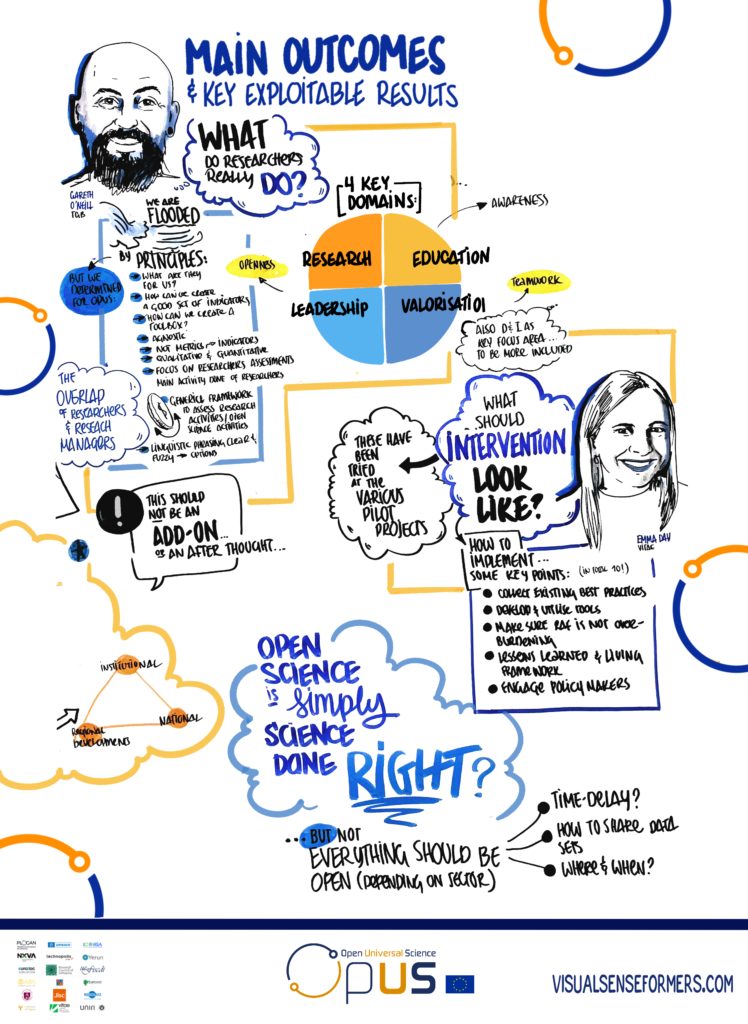 MAIN OUTCOMES
& KEY EXPLOITABLE RESULTS
WHAT
DO RESEARCHERS
REALLY DO?
GARETH
O'NEILL
TGB
WE ARE
FLOODED
BY PRINCIPLES:
BUT WE
DETERMINED
FOR OPUS:
WHAT ARE THEY
FOR US?
HOW CAN WE CREATE
A GOOD SET OF INDICATORS
HOW CAN WE CREATE A
TOOLBOX?
AGNOSTIC
NOT METRICS → INDICATORS
QUALITATIVE & QUANTITATIVE
FOCUS ON RESEARCHERS ASSESSMENTS
MAIN ACTIVITY DONE OF RESEARCHERS
GENERICAL FRAMEWORK
TO ASSESS RESEARCH
ACTIVITIES/OPEN
SCIENCE ACTIVITIES
LINGUISTIC PHRASING, CLEAR &
FUZZY → OPTIONS
THE
OVERLAP
OF RESEARCHERS &
RESEACH
MANAGERS
4 KEY
DOMAINS:
AWARENESS
OPENNESS
RESEARCH
EDUCATION
LEADERSHIP
VALORISATIOI
TEAMWORK
ALSO D&I AS
KEY FOCUS AREA...
TO BE MORE INCLUDED
!
THIS SHOULD
NOT BE AN
ADD-ON...
OR AN AFTER THOUGHT...
THESE HAVE
BEEN
TRIED
AT THE
VARIOUS
PILOT
PROJECTS
WHAT
SHOULD
INTERVENTION
LOOK
LIKE?
EMMA DAY
VITAE
HOW TO
IMPLEMENT...
SOME KEY POINTS: (IN TOTAL 10!)
COLLECT EXISTING BEST PRACTICES
DEVELOP & UTILISE TOOLS
MAKE SURE RAF IS NOT OVER-
BURDENING
LESSONS LEARNED & LIVING
FRAMEWORK
ENGAGE POLICY MAKERS
INSTITUTIONAL
NATIONAL
REGIONAL
DEVELOPMENTS
OPEN
SCIENCE
IS simply
SCIENCE
DONE
RIGHT?
... BUT NOT
EVERYTHING SHOULD BE
OPEN (DEPENDING ON SECTOR)
TIME-DELAY?
HOW TO SHARE DATA
SETS
WHERE & WHEN?
PLOCAN
technopolis
Yerun
Jisc
vitae
Open Universal Science
OPUS
VISUALSENSEFORMERS.COM